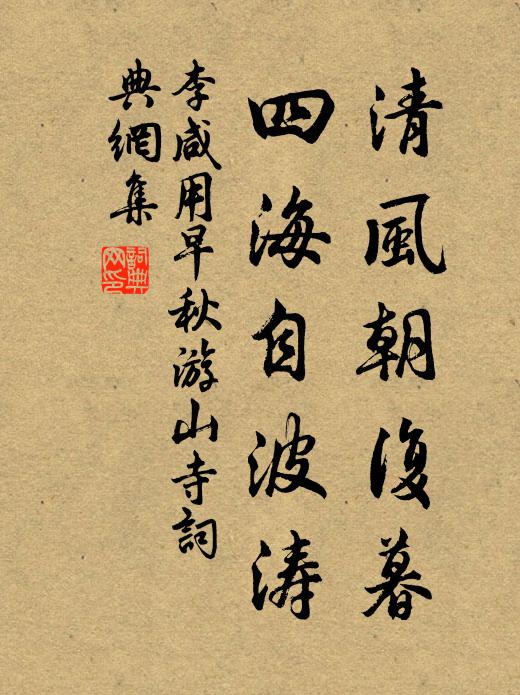 清風朝復暮
四海自波涛
李咸用早秋游山寺詞
典網集
詞典网印